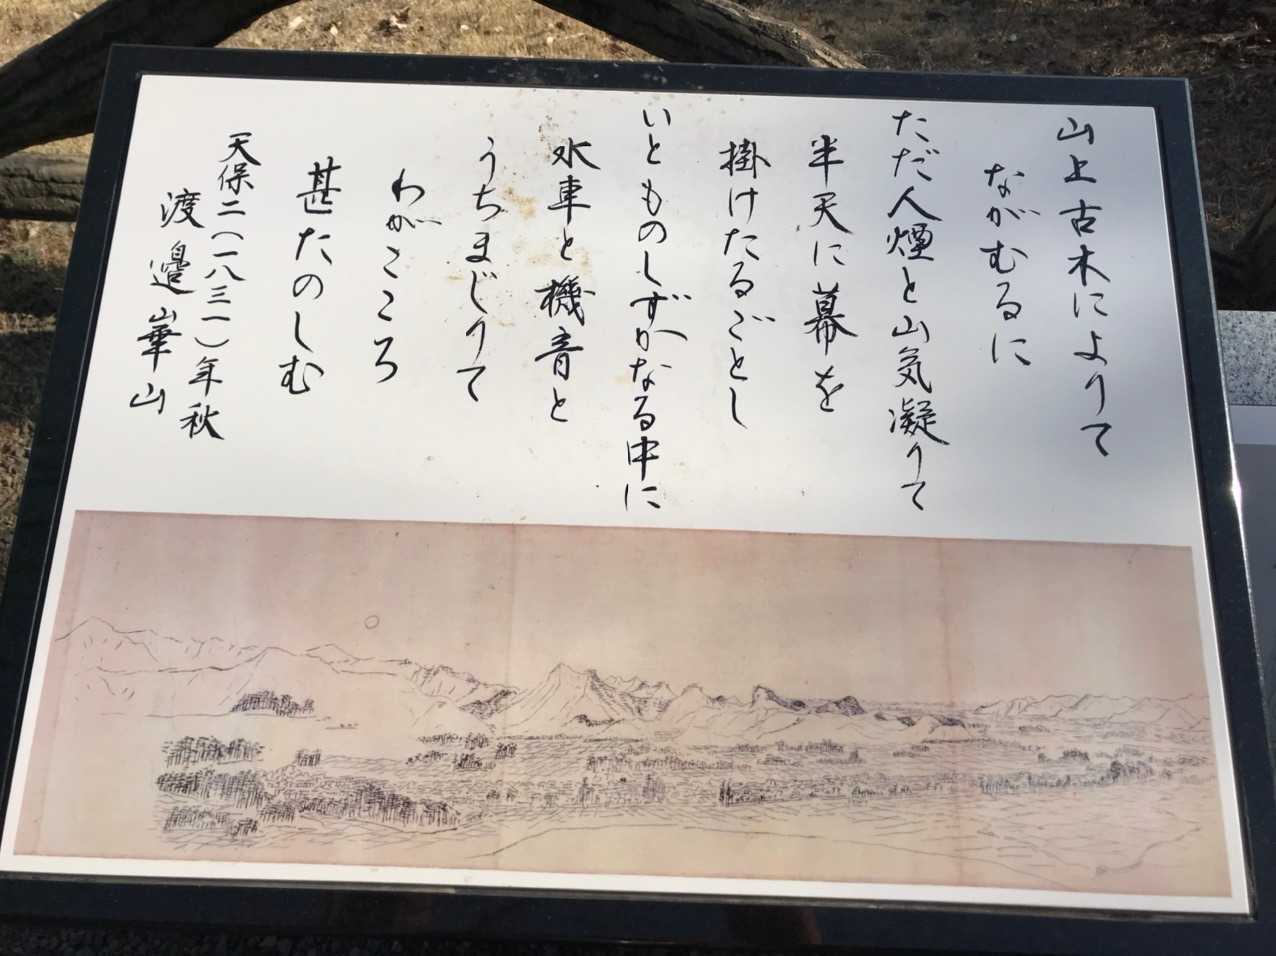 山上古木によりて
ながむるに
ただ人煙と山気凝りて
半天に幕を
掛けたるごとし
いとものしずかなる中に
水車と機音と
うちまじりて
わがこころ
甚だたのしむ
天保二(一八三一)年秋
渡邉崋山